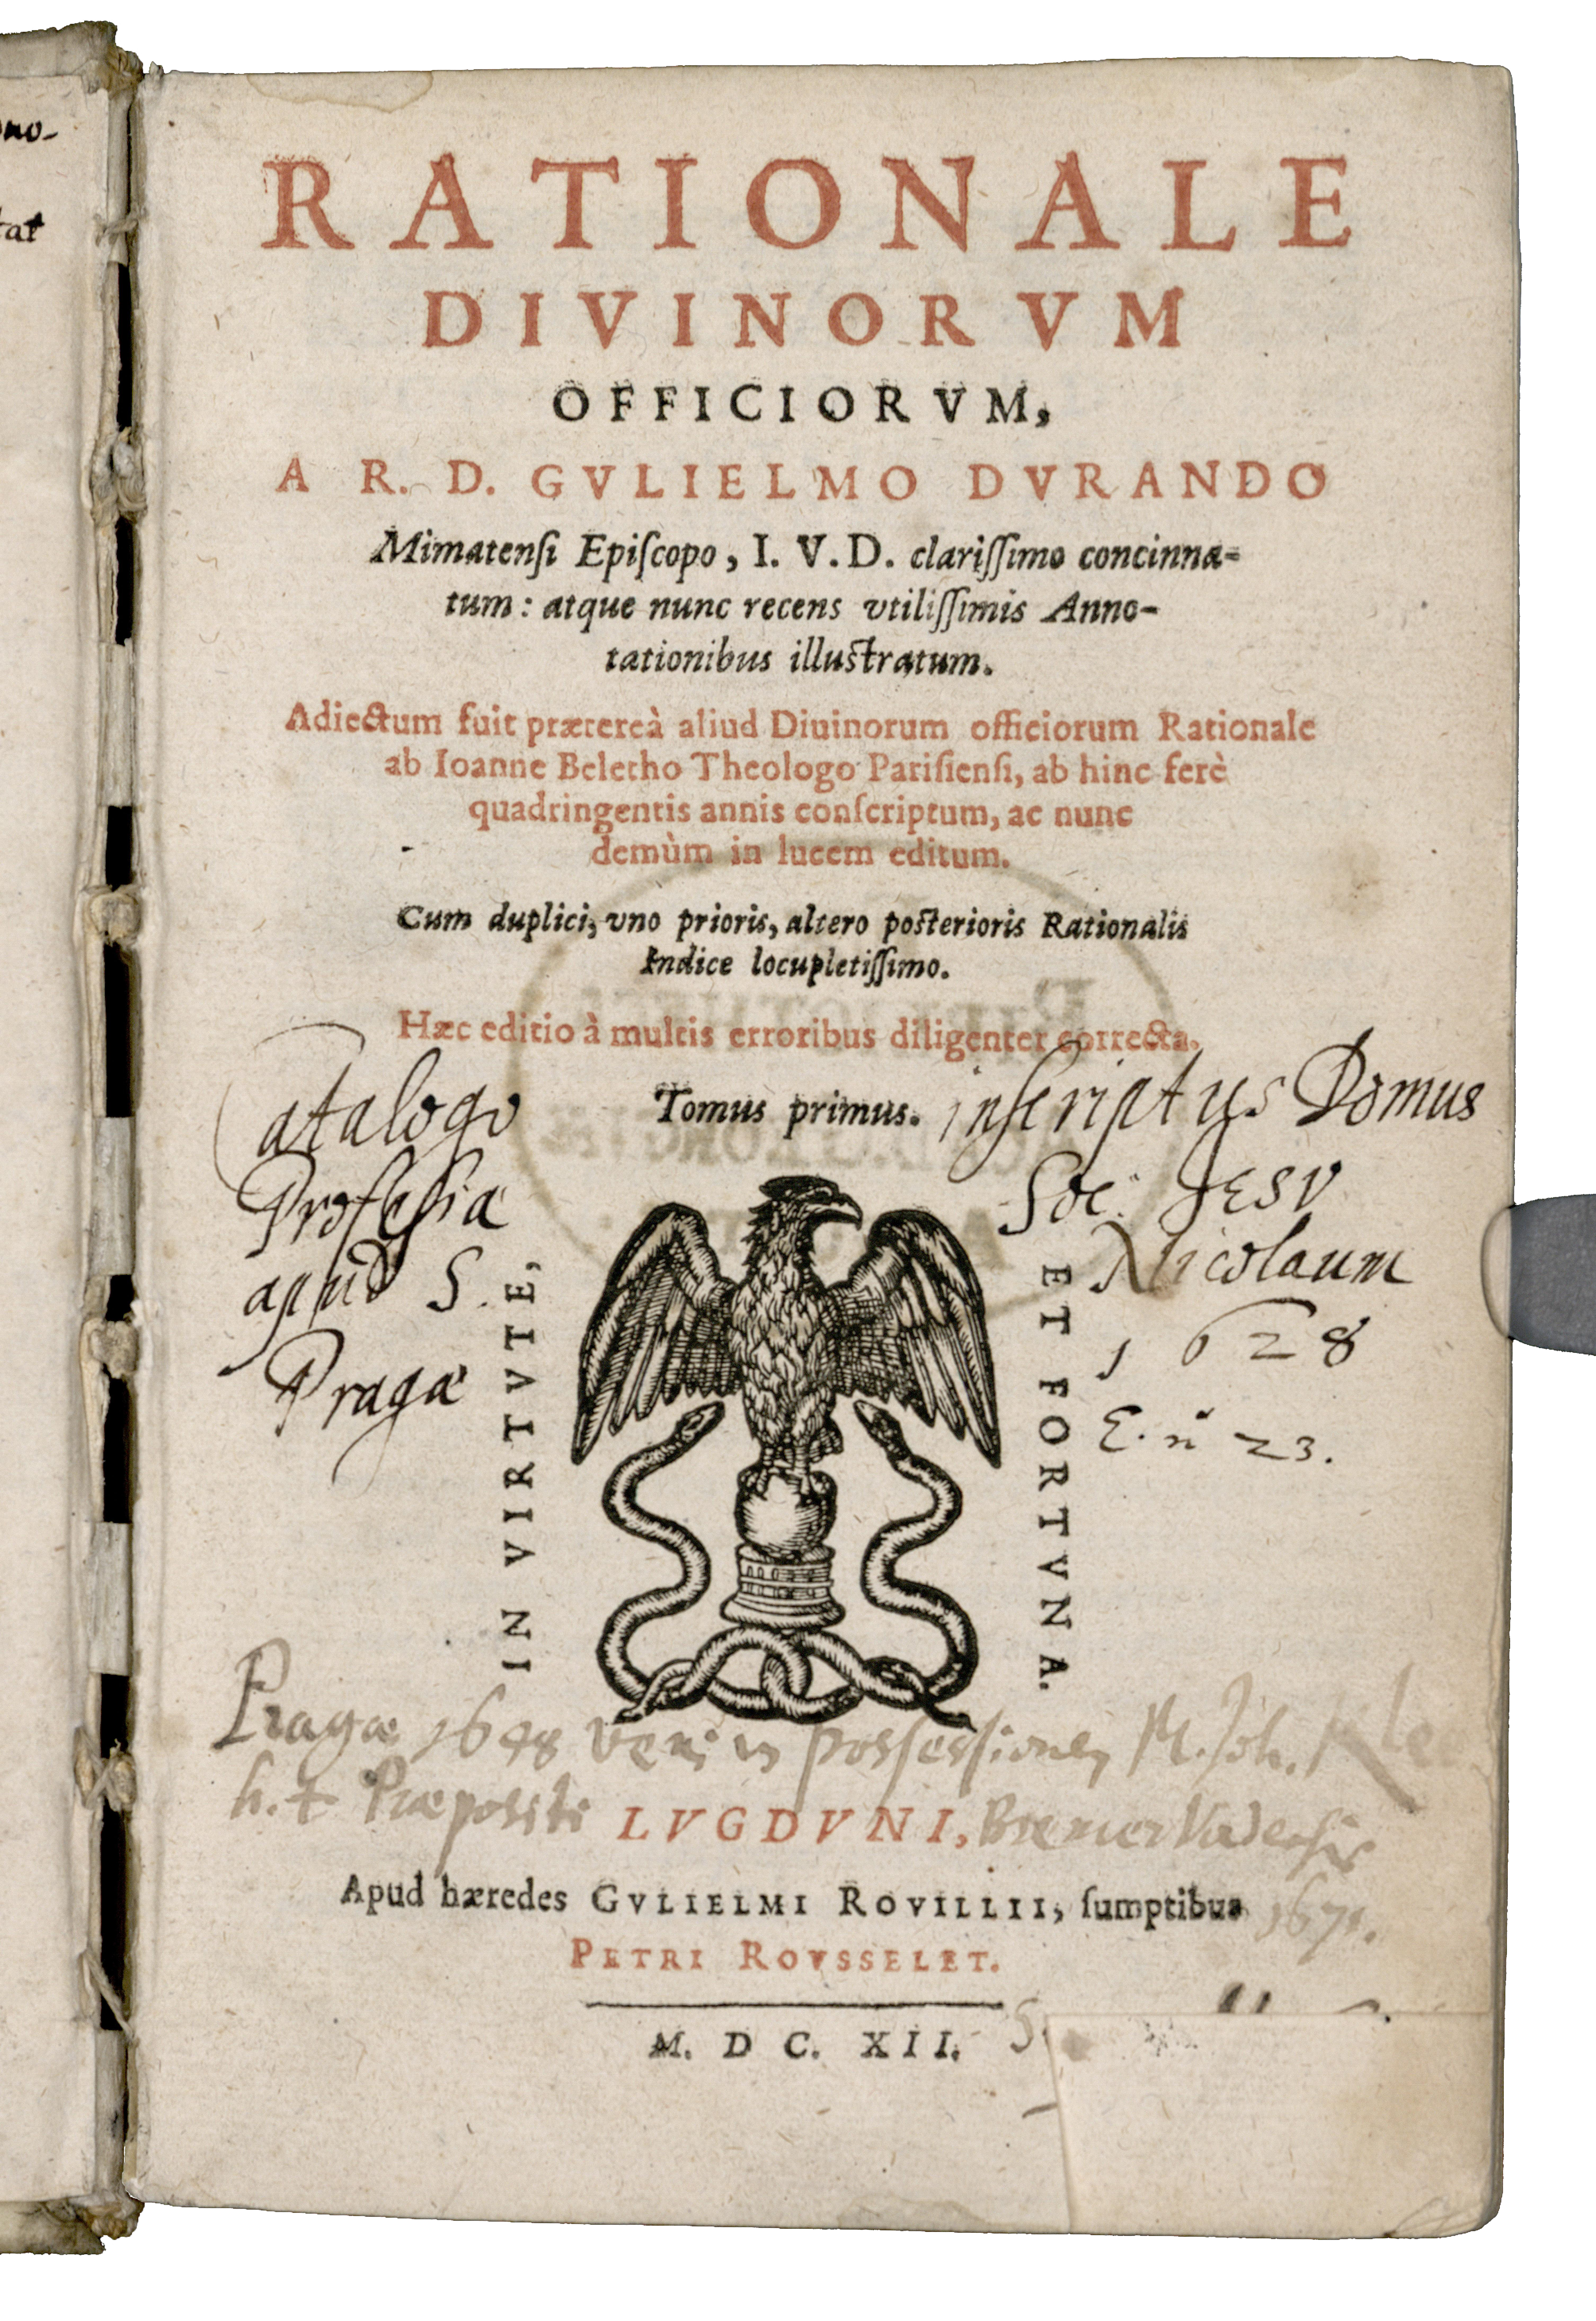 RATIONALE
DIVINORVM
OFFICIORVM,
A R. D. GVLIELMO DVRANDO
Mimatensi Episcopo, I. V. D. clarissimo concinna-
tum: atque nunc recens vtilissimis Anno-
tationibus illustratum.
Adiectum fuit prætereà aliud Diuinorum officiorum Rationale
ab Ioanne Beletho Theologo Parisiensi, ab hinc ferè
quadringentis annis conscriptum, ac nunc
demùm in lucem editum.
Cum duplici, vno prioris, altero posterioris Rationalis
Indice locupletissimo.
Hæc editio à multis erroribus diligenter correcta.
Tomus primus.
Catalogo inscriptus Domus
Professæ Soc: JESV
apud S. Nicolaum
Pragæ 1628
E. n 23.
IN VIRTVTE,
ET FORTVNA.
Pragæ 1648 veni in possessionem M. Joh.
h. t. Præpositi
LVGDVNI,
Apud hæredes GVLIELMI ROVILLII, sumptibus
1671.
PETRI ROVSSELET.
M. DC. XII.
ono-
tat